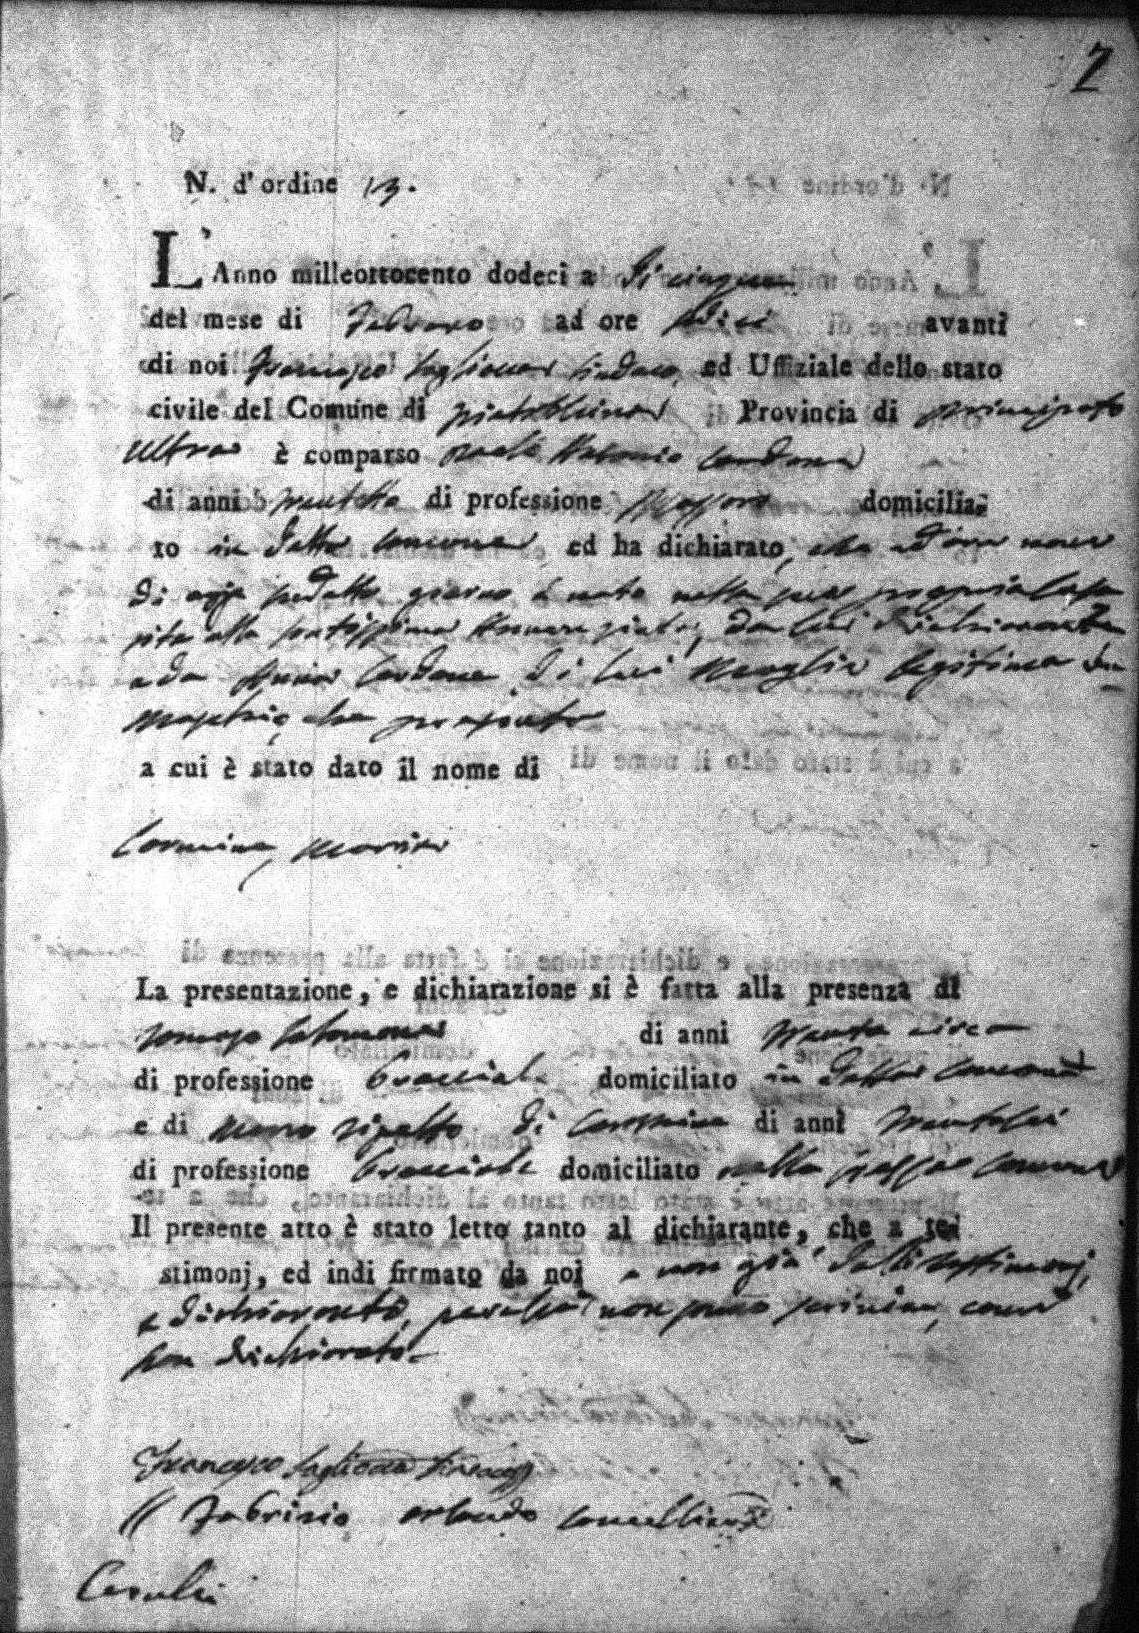 7
N. d'ordine 13.
L'Anno milleottocento dodeci a di cinque
del mese di Febraro ad ore dieci avanti
di noi Francesco Taglione Sindaco, ed Uffiziale dello stato
civile del Comune di Provincia di principato
Ultra è comparso Antonio Cardone
di anni di professione domicilia-
to in detto Comune ed ha dichiarato, che ad ore nove
di oggi sudetto giorno è nata nella sua propria Casa
sita alla Santissima Annunziata, da lui Dichiarante
e da Cardone di lui Moglie legittima
che presente
a cui è stato dato il nome di
Carmina Maria
La presentazione, e dichiarazione si è fatta alla presenza di
Salomone di anni trenta circa
di professione bracciale domiciliato in detto Comune
e di di Carmine di anni
di professione bracciale domiciliato nello stesso Comune
Il presente atto è stato letto tanto al dichiarante, che a te-
stimonj, ed indi firmato da noi e non già dalli testimonj,
e dichiarante, non scrivere, come
han dichiarato.
Francesco Taglione Sindaco
Fabrizio Orlando Cancelliere